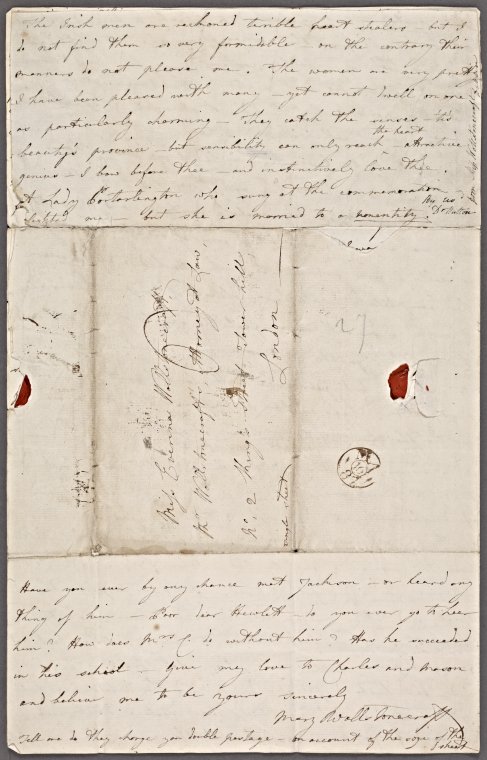 The Irish men are reckoned terrible heart stealers – but I
do not find them so very formidable – on the contrary their
manners do not please me. The women are very pretty
I have been pleased with many – yet cannot dwell on one
as particularly charming – They catch the senses – tis
the heart
beauty's province but sensibility can only reach – attractive
genius – I bow before thee – and instinctively love thee.
A Lady Portarlington who sung at the commemoration
delighted me – but she is married to a nonentity.
Miss Everina Wollstonecraft
Mr Wollstonecraft's Attorney at Law,
No. 2 King's Street Tower hill
London
single sheet
27
Have you ever by any chance met Jackson – or heard any
thing of him – Poor dear Hewlett – do you ever go to hear
him? How does Mrs C. do without him? Has he succeeded
in his school – Give my love to Charles and Mason
and believe me to be yours sincerely
Mary Wollstonecraft
Tell me do they charge you double postage – on account of the size of the
sheet